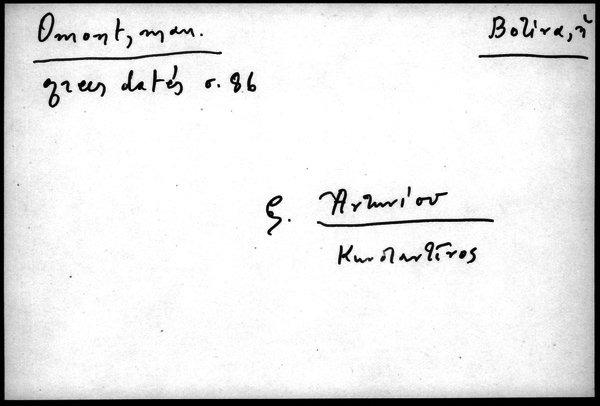 Omont, man.
grecs datés σ. 86
Βοτίνα, ἡ
ξ. Ἀντωνίου
Κωνσταντῖνος